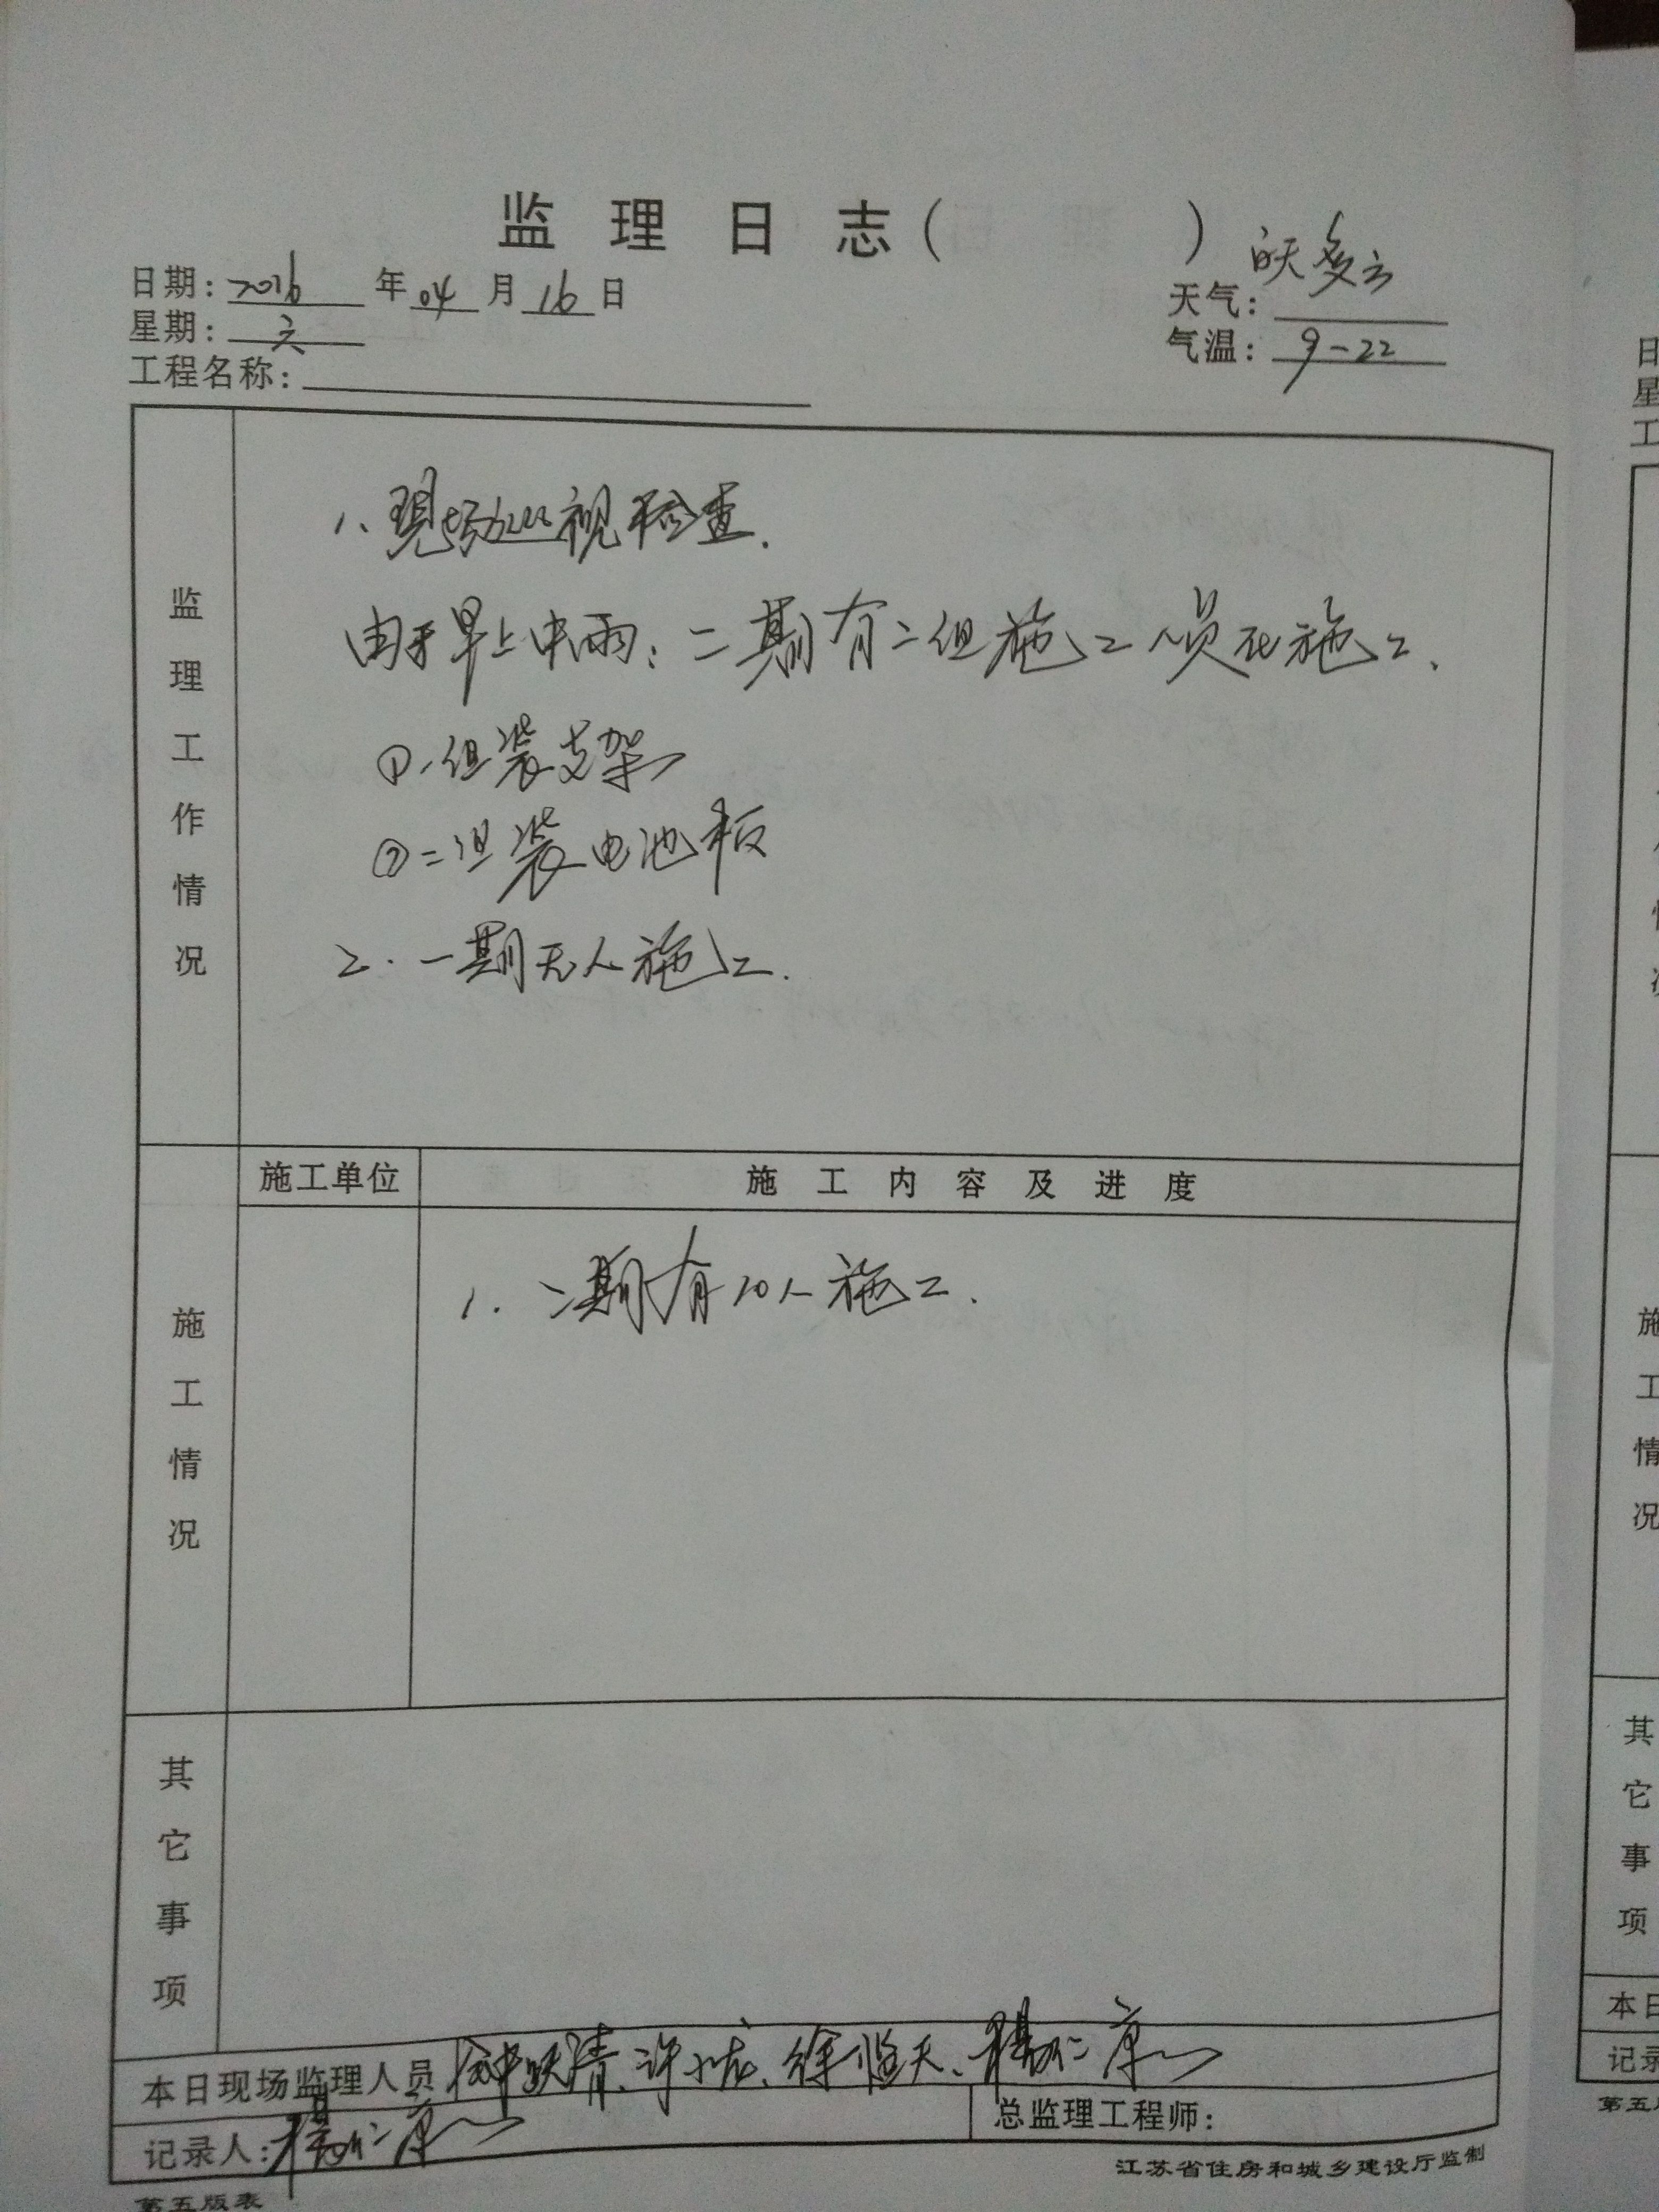 监理日志（ ）
日期：2016年04月16日
天气：白天多云
星期：六
气温：9-22
工程名称：
监理工作情况
1、现场巡视检查.
由于早上中雨：二期有二组施工人员在施工.
①.一组装支架
②二组装电池板
2.一期无人施工.
施工单位
施工内容及进度
施工情况
1.二期有10人施工.
其它事项
本日现场监理人员 清、许小龙、徐 天、杨仁康
记录人：杨仁康
总监理工程师：
江苏省住房和城乡建设厅监制
第五版表
日
星
工
施
工
情
况
其
它
事
项
本日
记录
第五